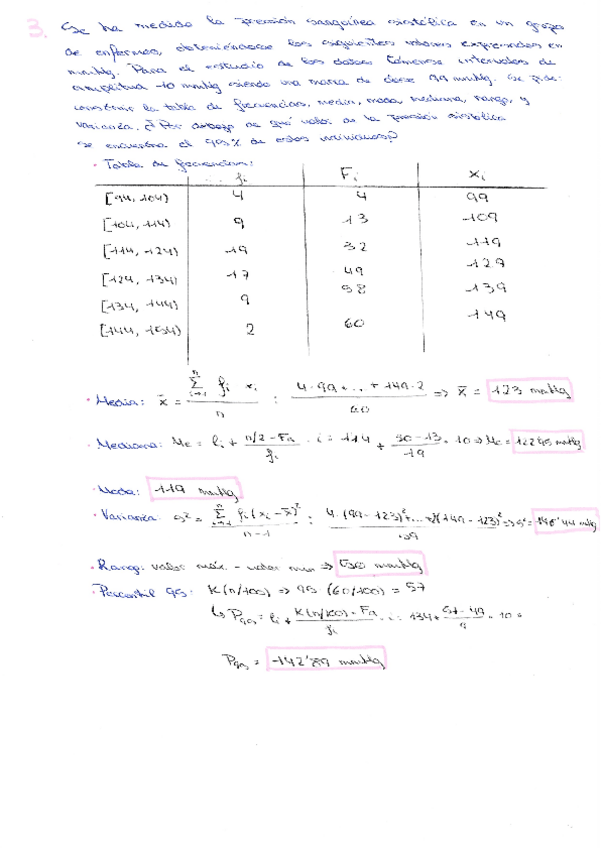 3. Se ha medido la presión sanguínea sistólica en un grupo
de enfermos, obteniéndose los siguientes valores expresados en
mmHg. Para el estudio de los datos tómense intervalos de
amplitud 10 mmHg siendo una marca de clase 99 mmHg. Se pide:
construir la tabla de frecuencias, media, moda, mediana, rango, y
varianza. ¿Por debajo de qué valor de la presión sistólica
se encuentra el 95% de estos individuos?
· Tabla de frecuencias:
fi Fi xi
[94, 104) 4 4 99
[104, 114) 9 13 109
[114, 124) 19 32 119
[124, 134) 17 49 129
[134, 144) 9 58 139
[144, 154) 2 60 149
· Media: x̄ = Σ fi xi / n : 4·99 + ... + 149·2 / 60 => x̄ = 123 mmHg
· Mediana: Me = li + n/2 - Fa / fi · i = 114 + 30-13 / 19 · 10 => Me = 122'95 mmHg
· Moda: 119 mmHg
· Varianza: s² = Σ fi (xi - x̄)² / n-1 : 4·(99-123)² + ... + 2(149-123)² / 59 => s² = 44 mmHg
· Rango: valor máx. - valor mín =>
· Percentil 95: K(n/100) => 95 (60/100) = 57
↳ P95 = li + K(n/100) - Fa / fi · i = 134 + 57-49 / 9 · 10 =
P95 = 142'89 mmHg